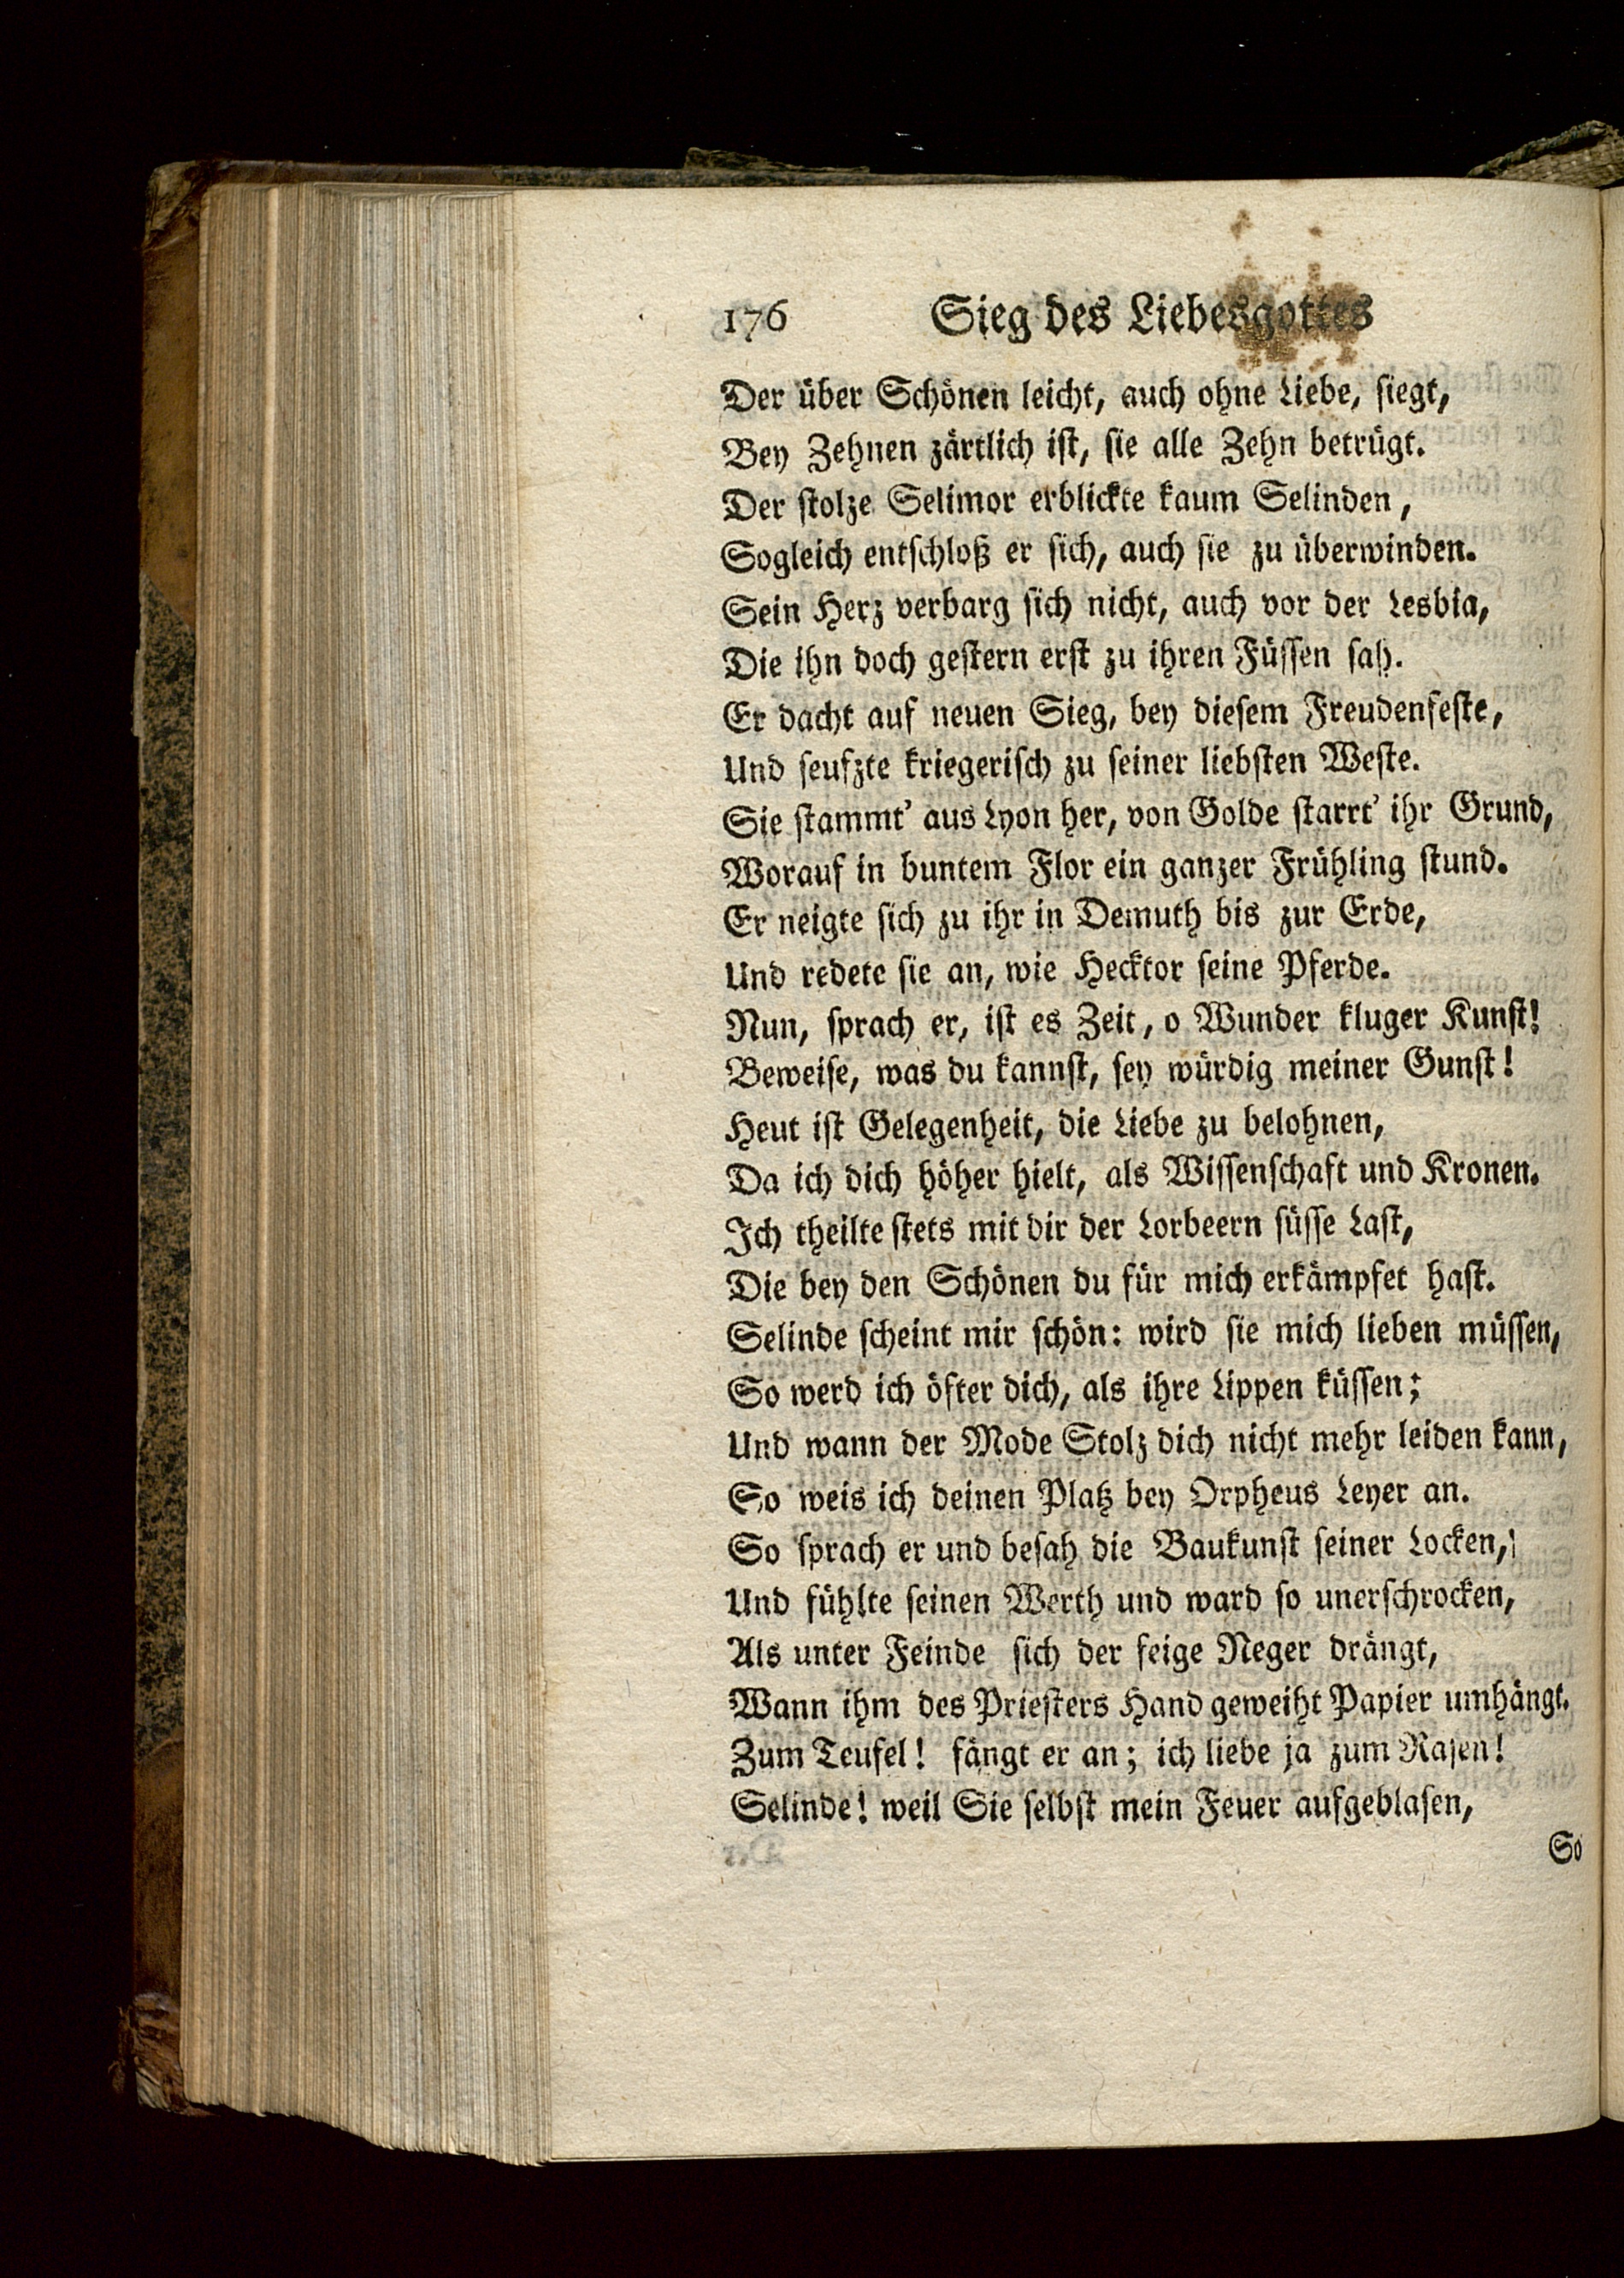 176 Sieg des Liebesgottes
Der über Schönen leicht, auch ohne Liebe, siegt,
Bey Zehnen zärtlich ist, sie alle Zehn betrügt.
Der stolze Selimor erblickte kaum Selinden,
Sogleich entschloß er sich, auch sie zu überwinden.
Sein Herz verbarg sich nicht, auch vor der Lesbia,
Die ihn doch gestern erst zu ihren Füssen sah.
Er dacht auf neuen Sieg, bey diesem Freudenfeste,
Und seufzte kriegerisch zu seiner liebsten Weste.
Sie stammt' aus Lyon her, von Golde starrt' ihr Grund,
Worauf in buntem Flor ein ganzer Frühling stund.
Er neigte sich zu ihr in Demuth bis zur Erde,
Und redete sie an, wie Hecktor seine Pferde.
Nun, sprach er, ist es Zeit, o Wunder kluger Kunst!
Beweise, was du kannst, sey würdig meiner Gunst!
Heut ist Gelegenheit, die Liebe zu belohnen,
Da ich dich höher hielt, als Wissenschaft und Kronen.
Ich theilte stets mit dir der Lorbeern süsse Last,
Die bey den Schönen du für mich erkämpfet hast.
Selinde scheint mir schön: wird sie mich lieben müssen,
So werd ich öfter dich, als ihre Lippen küssen;
Und wann der Mode Stolz dich nicht mehr leiden kann,
So weis ich deinen Platz bey Orpheus Leyer an.
So sprach er und besah die Baukunst seiner Locken,
Und fühlte seinen Werth und ward so unerschrocken,
Als unter Feinde sich der feige Neger drängt,
Wann ihm des Priesters Hand geweiht Papier umhängt.
Zum Teufel! fängt er an; ich liebe ja zum Rasen!
Selinde! weil Sie selbst mein Feuer aufgeblasen,
So